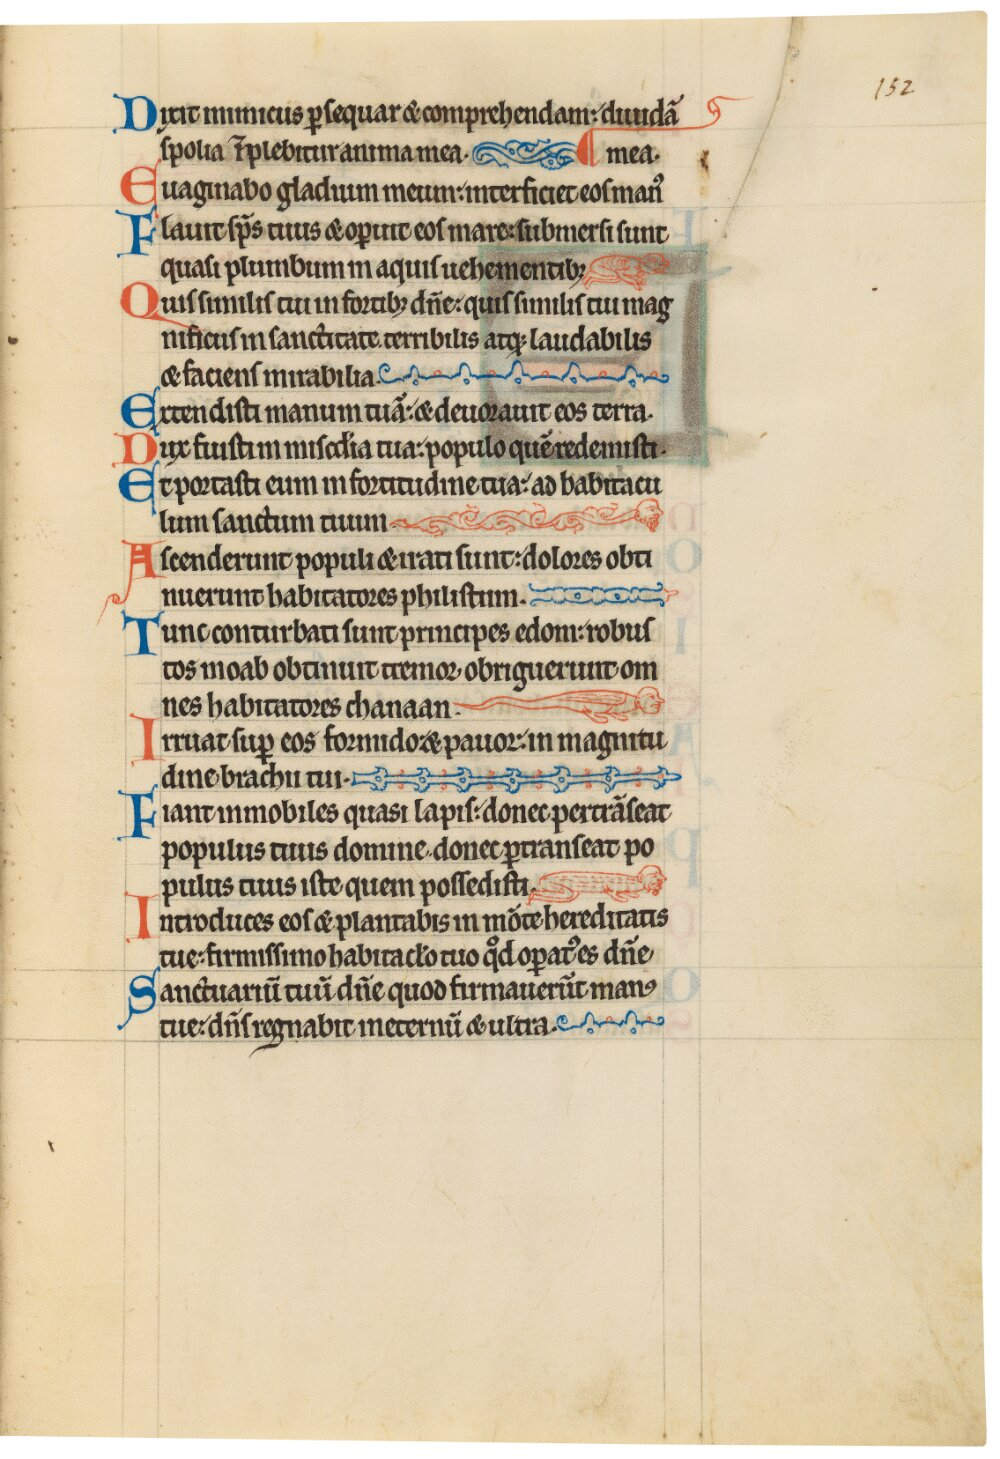 152
Dixit inimicus ꝑsequar & comprehendam: diuidā
spolia īplebitur anima mea. mea.
Euaginabo gladium meum: interficiet eos man᷒
Flauit sp̄s tuus & operuit eos mare: submersi sunt
quasi plumbum in aquis uehementibꝫ
Quis similis tui in fortibꝫ dn̄e: quis similis tui mag
nificus in sanctitate. terribilis atqꝫ laudabilis
& faciens mirabilia.
Extendisti manum tuā: & deuorauit eos terra.
Dux fuisti in mis̄cdia tua: populo quē redemisti.
Et portasti eum in fortitudine tua: ad habitacu
lum sanctum tuum
Ascenderunt populi & irati sunt: dolores obti
nuerunt habitatores philistum.
Tunc conturbati sunt principes edom: robus
tos moab obtinuit tremor, obriguerunt om
nes habitatores chanaan.
Irruat suꝑ eos formido: & pauor: in magnitu
dine brachii tui.
Fiant inmobiles quasi lapis: donec pertrāseat
populus tuus domine. donec ꝑtranseat po
pulus tuus iste quem possedisti.
Introduces eos & plantabis in mōte hereditatis
tue: firmissimo habitac̄lo tuo qd̄ opat᷒ es dn̄e
Sanctuariū tuū dn̄e quod firmauerūt manꝰ
tue: dn̄s regnabit in eternū & ultra.